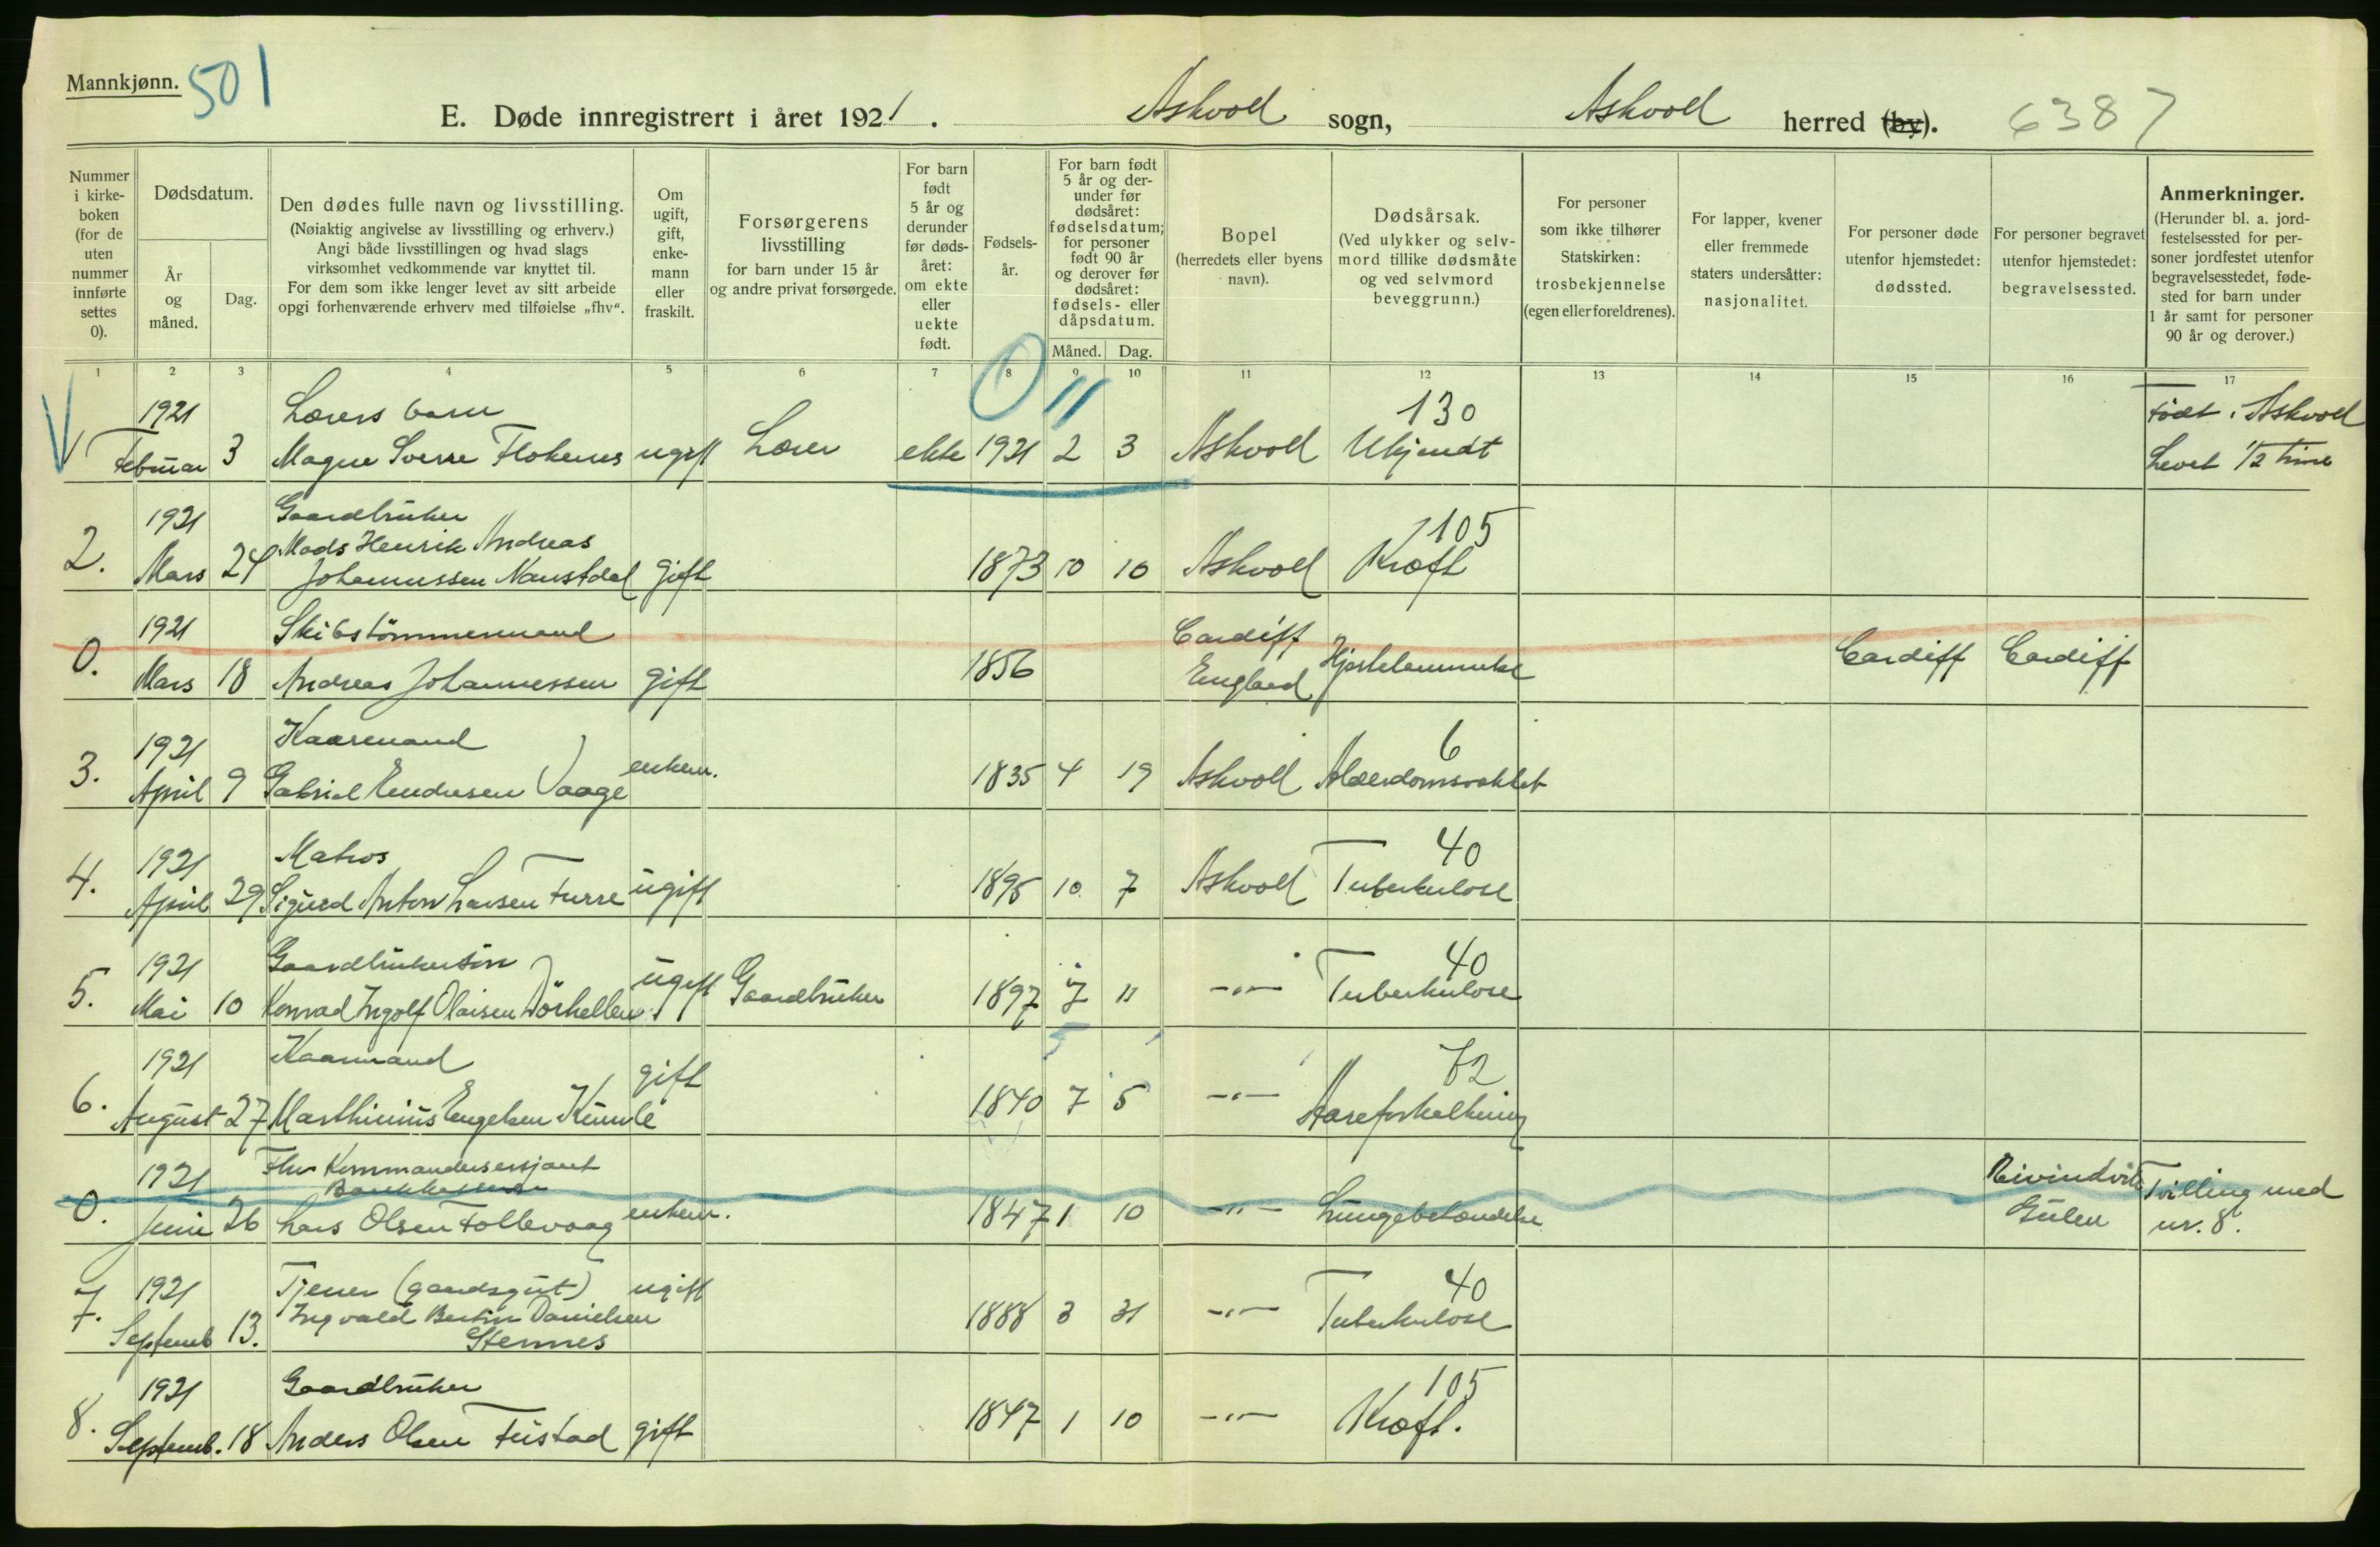 Mannkjønn.
501
E. Døde innregistrert i året 1921.
Askvoll sogn,
Askvoll herred (by).
6387
Nummer
i kirke-
boken
(for de
uten
nummer
innførte
settes
0).
Dødsdatum.
År
og
måned.
Dag.
Den dødes fulle navn og livsstilling.
(Nøiaktig angivelse av livsstilling og erhverv.)
Angi både livsstillingen og hvad slags
virksomhet vedkommende var knyttet til.
For dem som ikke lenger levet av sitt arbeide
opgi forhenværende erhverv med tilføielse „fhv“.
Om
ugift,
gift,
enke-
mann
eller
fraskilt.
Forsørgerens
livsstilling
for barn under 15 år
og andre privat forsørgede.
For barn
født
5 år og
derunder
før døds-
året:
om ekte
eller
uekte
født.
Fødsels-
år.
For barn født
5 år og der-
under før
dødsåret:
fødselsdatum;
for personer
født 90 år
og derover før
dødsåret:
fødsels- eller
dåpsdatum.
Måned.
Dag.
Bopel
(herredets eller byens
navn).
Dødsårsak.
(Ved ulykker og selv-
mord tillike dødsmåte
og ved selvmord
beveggrunn.)
For personer
som ikke tilhører
Statskirken:
trosbekjennelse
(egen eller foreldrenes).
For lapper, kvener
eller fremmede
staters undersåtter:
nasjonalitet.
For personer døde
utenfor hjemstedet:
dødssted.
For personer begravet
utenfor hjemstedet:
begravelsessted.
Anmerkninger.
(Herunder bl. a. jord-
festelsessted for per-
soner jordfestet utenfor
begravelsesstedet, føde-
sted for barn under
1 år samt for personer
90 år og derover.)
1 2 3 4 5 6 7 8 9 10 11 12 13 14 15 16 17
0 11
1921 Lærers barn 130 Født i Askvoll
1 Februar 3 Magne Sverre Flokenes ugift Lærer ekte 1921 2 3 Askvoll Ukjendt Levet 1/2 time
1921 Gaardbruker 105
Mads Henrik Andreas
2. Mars 24 Johannessen Naustdal gift 1873 10 10 Askvoll Kræft
1921 Skibstömmermand Cardiff
0. Mars 18 Andreas Johannessen gift 1856 England Hjertelammelse Cardiff Cardiff
1921 Kaarmand 6
3. April 9 Gabriel Endresen Vaage enkem. 1835 4 19 Askvoll Alderdomssvakhet
1921 Matros 40
4. April 29 Sigurd Anton Larsen Furre ugift 1895 10 7 Askvoll Tuberkulose
1921 Gaardbrukersön 40
5. Mai 10 Konrad Ingolf Olaisen Dörhellen ugift Gaardbruker 1897 7 11 -„- Tuberkulose
1921 Kaarmand gift 82
6. August 27 Marthinius Engelsen Kumle 1840 7 5 -„- Aareforkalkning
1921 Fhv Kommandersersjant Eivindvik Tvilling med
Bankkasserer
0. Juni 26 Lars Olsen Follevaag enkem. 1847 1 10 -„- Lungebetændelse Gulen nr. 8.
1921 Tjener (gaardsgut) ugift 40
7. Septemb 13. Ingvald Bertin Danielsen 1888 3 31 -„- Tuberkulose
Stennes
1921 Gaardbruker 105
8. Septemb. 18 Anders Olsen Feistad gift 1847 1 10 -„- Kræft.